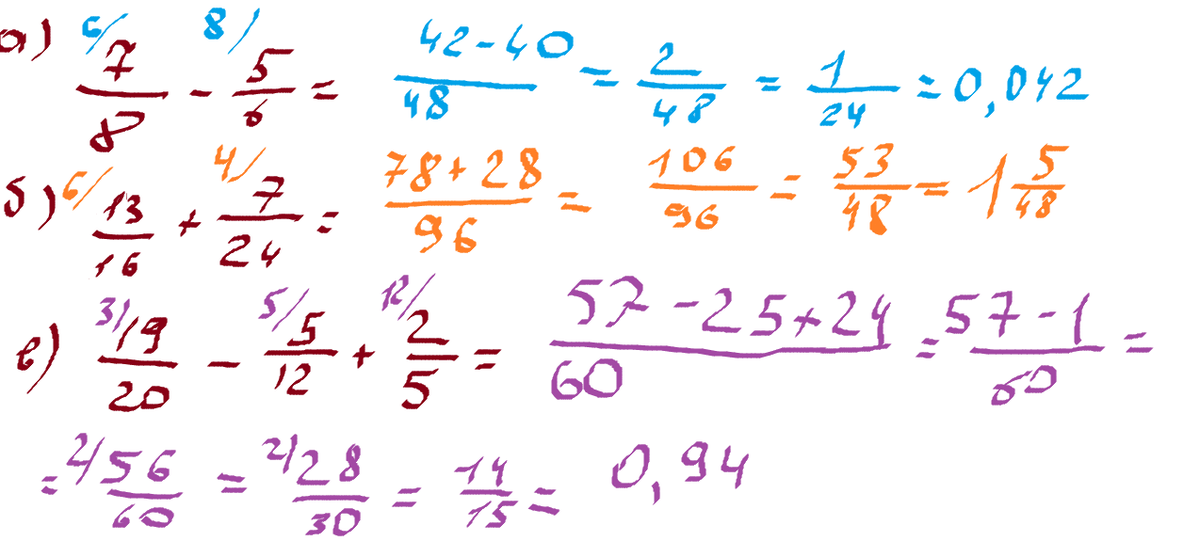 а) 6/ 7/8 - 8/ 5/6 = 42-40/48 = 2/48 = 1/24 = 0,042
б) 6/ 13/16 + 4/ 7/24 = 78+28/96 = 106/96 = 53/48 = 1 5/48
в) 3/ 19/20 - 5/ 5/12 + 12/ 2/5 = 57-25+24/60 = 57-1/60 =
= 2/ 56/60 = 2/ 28/30 = 14/15 = 0,94